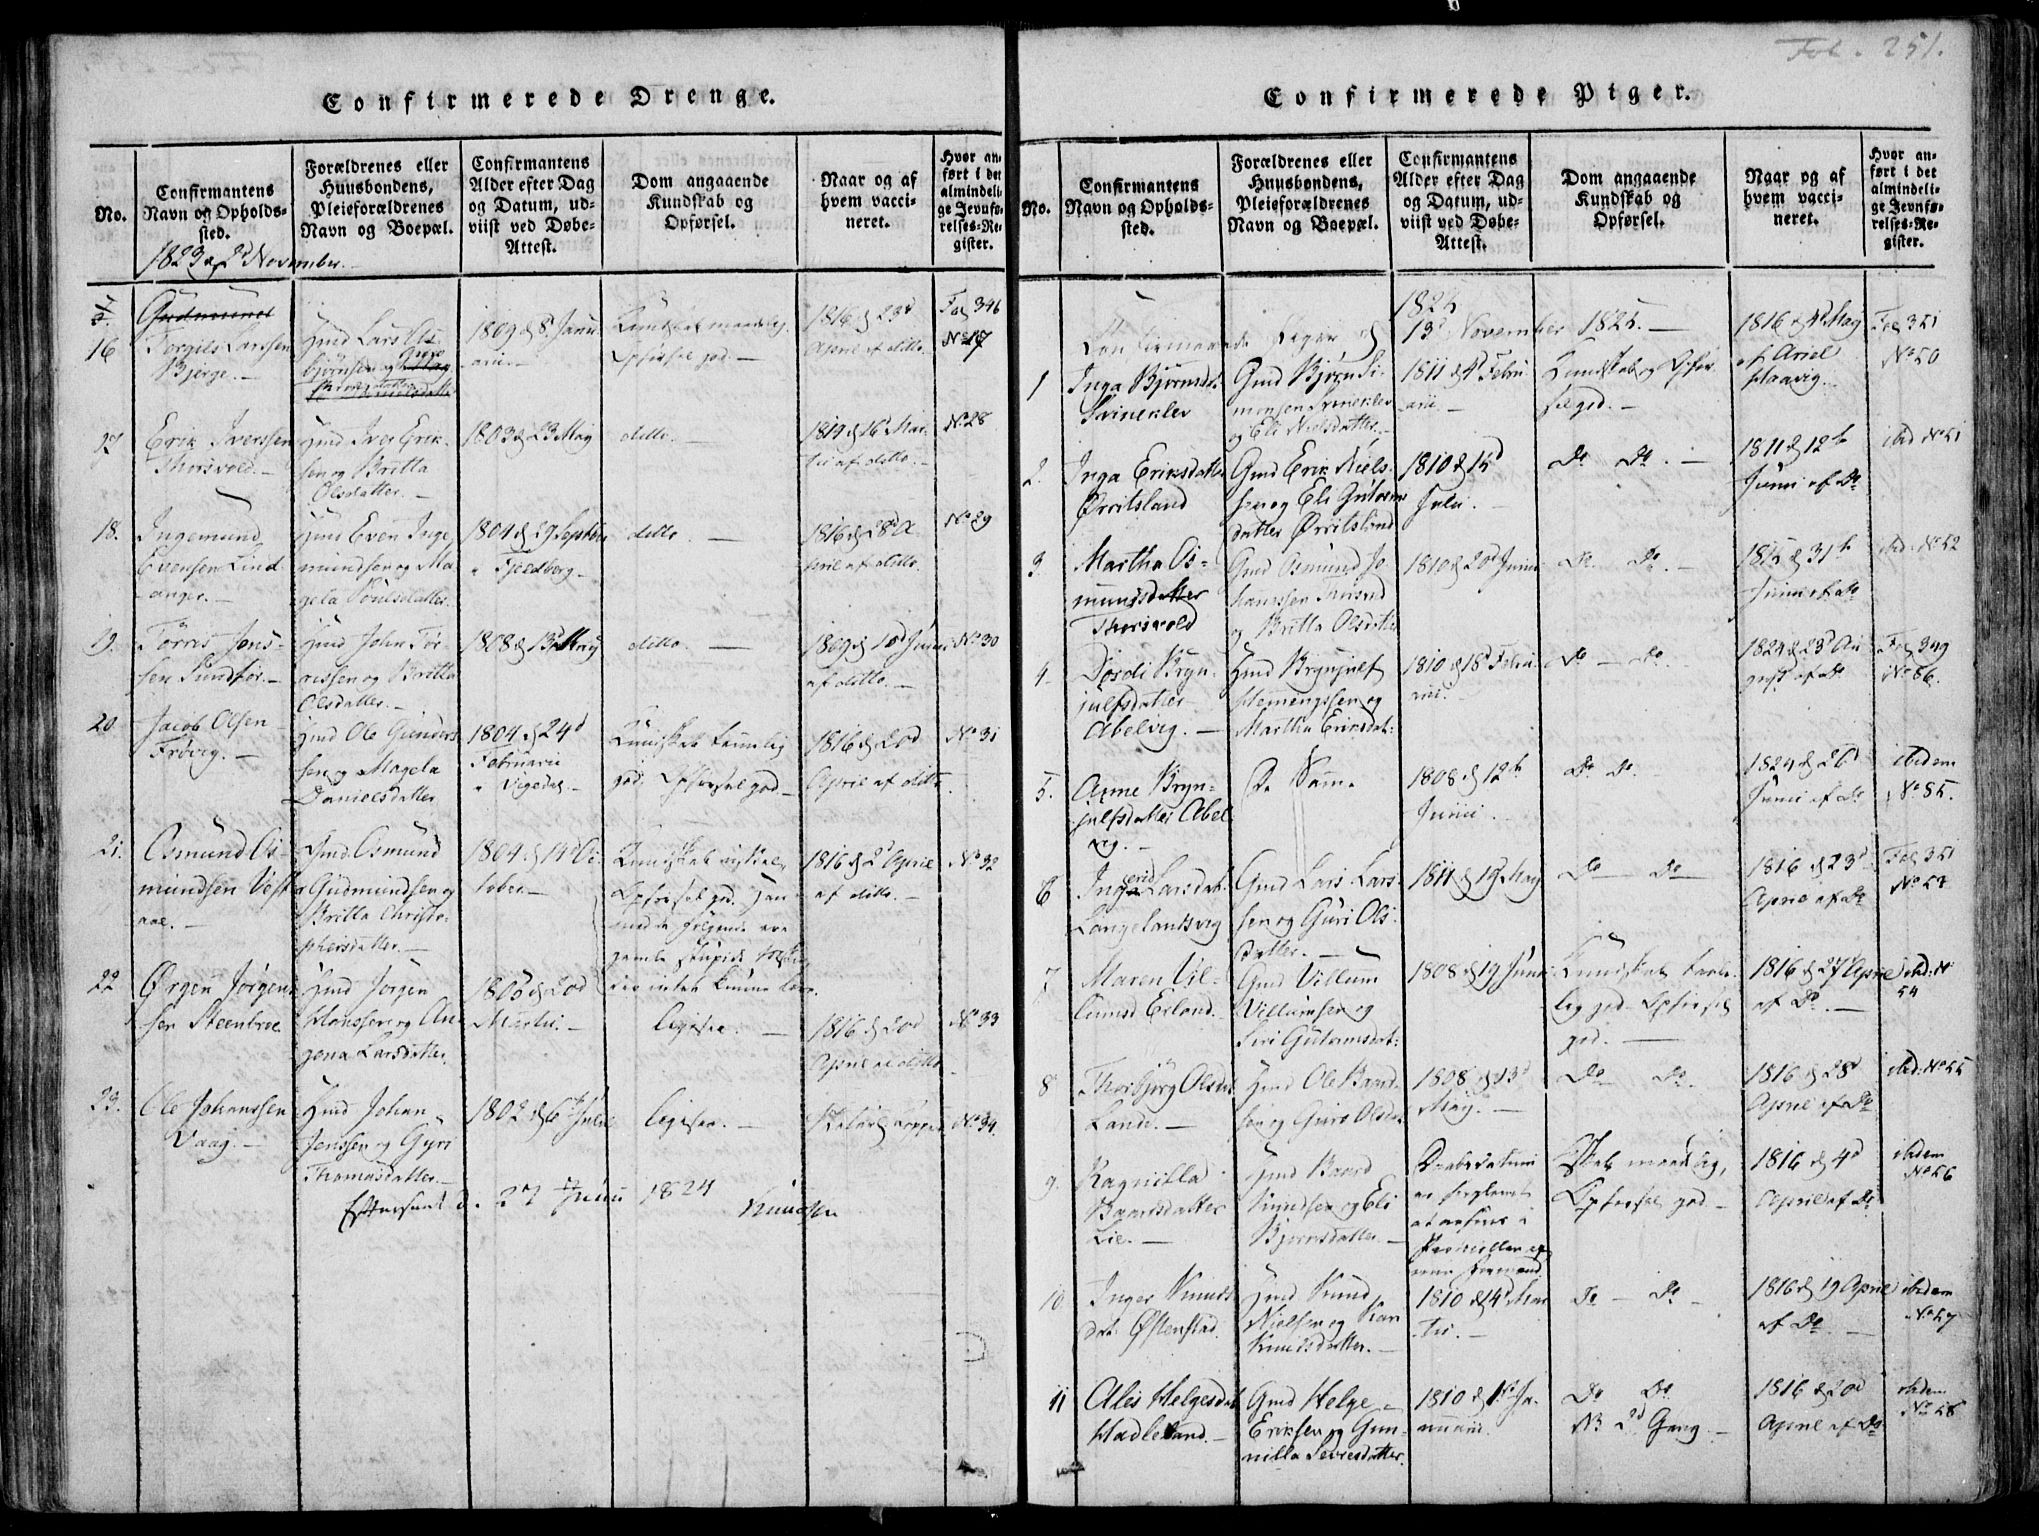 Fol. 251.
Confirmerede Drenge.
No.
Confirmantens Navn og Opholds-sted.
Forældrenes eller Huusbondens, Pleieforældrenes Navn og Boepæl.
Confirmantens Alder efter Dag og Datum, ud-viist ved Døbe-Attest.
Dom angaaende Kundskab og Opførsel.
Naar og af hvem vacci-neret.
Hvor an-ført i det almindeli-ge Jevnfø-relses-Re-gister.
1823 d. 2d November.
16
Torgils Larssen
Bjerge.
Gmd Lars As-
bjørnsen og
1809 d 8 Janu-
arii.
Kundskab maadelig.
Opførsel god.
1816 d 23d
April af ditto.
Fol 346
No 17
Erik Iverssen
Thorsvold.
Gmd Iver Erik-
sen og Britta
Olsdatter.
1803 d 23 May
ditto.
1814 d 16 Mar-
tii af ditto.
No 28
18.
Ingemund
Evensen Lind
anger.
Gmd Even Inge
mundsen og Ma
gela Poulsdatter.
1804 d 29 Septbr
Fjeldberg
ditto.
1816 d 28d A
pril af ditto.
No 29
19.
Torres Jons-
sen Sundfør.
Gmd John Tor
ressen og Britta
Olsdatter.
1808 d 13 May
ditto.
1809 d 10d Junii
af ditto.
No 30
20
Jacob Olsen
Frøvig.
Gmd Ole Gunders
sen og Magela
Danielsdatter
1804 d 24d
Februarii
Vigedal.
Kundskab temmelig
god. Opførsel god.
1816 d 20d
April af ditto
No 31
21.
Osmund Os-
mundsen Vest
aae.
Gmd. Osmund
Gudmundsen og
Britta Christo-
phersdatter.
1804 d 14 Oc
tober
1816 d 2d April
af ditto.
No 32
22
Ørgen Jørgen
sen Steenbroe
Gmd Jørgen
Hanssen og An
gena Larsdatter.
1805 d 20d
Martii.
ligesaa.
1816 d 20d
April af ditto
No 33
23.
Ole Johanssen
Vaag.
Gmd Johan
Jenssen og Gyri
Thomasdatter.
1802 d 6 Julii
ligesaa.
No 34.
Efterseet d. 27 Junii 1824
Knudsen
Confirmerede Piger.
No.
Confirmantens Navn og Opholds-sted.
Forældrenes eller Huusbondens, Pleieforældrenes Navn og Boepæl.
Confirmantens Alder efter Dag og Datum, ud-viist ved Døbe-Attest.
Dom angaaende Kundskab og Opførsel.
Naar og af hvem vacci-neret.
Hvor an-ført i det almindeli-ge Jevnfø-relses-Re-gister.
November
1
Inga Bjørnsdat.
Svinekler
Gmd Bjørn Si-
monsen Svinekler
og Eli Nielsdatter.
1811 d 4d Febru
arii.
Kundskab og Opfør
sel god.
1816 d 4d May
af Ariel
Haavig.
Fol 351
No 50
2.
Inga Eriksdatter
Ørritsland
Gmd Erik Niels-
sen og Eli Gutorms
datter Ørritsland
1810 d 15d
Julii.
Do Do.
1811 d 12te
Junii af Do
ibid No 51
3
Martha Os-
mundsdatter
Thorsvold
Gmd Osmund Jo
hanssen
og Britta Olsdatter
1810 d 20d Junii
Do. Do.
1815 d 31te
Junii af Do
ibid. No 52
4
Dordi Bryn-
julfsdatter
Abelvig.
Gmd Brynjulf
Hemingssen og
Martha Eriksdat.
1810 d 18d Febru
arii.
Do Do.
1824 d 23d Au
gust af Do
Fol 349
No 86.
5.
Anne Bryn-
julfsdatter Abel
vig.
De Samme
1808 d 12te
Junii.
Do Do.
1824 d 26d
Junii af Do
ibidem
No 85.
6
Ingerid Larsdat.
Langelandsvig
Gmd Lars Lars-
sen og Guri Ols-
datter.
1811 d 19 May
Do Do
1816 d 23d
April af Do
Fol 351
No 53
7
Maren Vil-
lumsd Erland.
Gmd Villum
Villumsen og
Siri Gutormsdat.
1808 d 19 Junii
Kundskab temme-
lig god. Opførsel
god.
1816 d 27 April
af Do.
ibid. N
54
8
Thorbjørg Olsdat
Lande.
Gmd Ole Baard
sen og Guro Olsdat
1808 d 13d
May.
Do Do.
1816 d 28d
April af Do
ibid. No 55
9.
Ragnilla
Baardsdatter
Lie.
Gmd Baard
Knudsen og Eli
Bjørnsdatter.
Daabsdatum
Kundskab maadelig,
Opførsel god.
1816 d 4d
April af Do
ibidem
No 56
10
Inger Knuds
dat. Østenstad.
Gmd Knud
Nielsen og Kari
Knudsdatter.
1810 d 14d Mar
tii.
Do Do
1816 d 19 April
af Do.
ibidem
No 57
11
Ales Helgesdat
Hadleland.
Gmd Helge
Eriksen og Gun-
nilla Sevriesdatter.
1810 d 1te Ja-
nuarii.
Do Do.
NB 2d Gang.
1816 d 20d
April af Do
ibidem
No 58